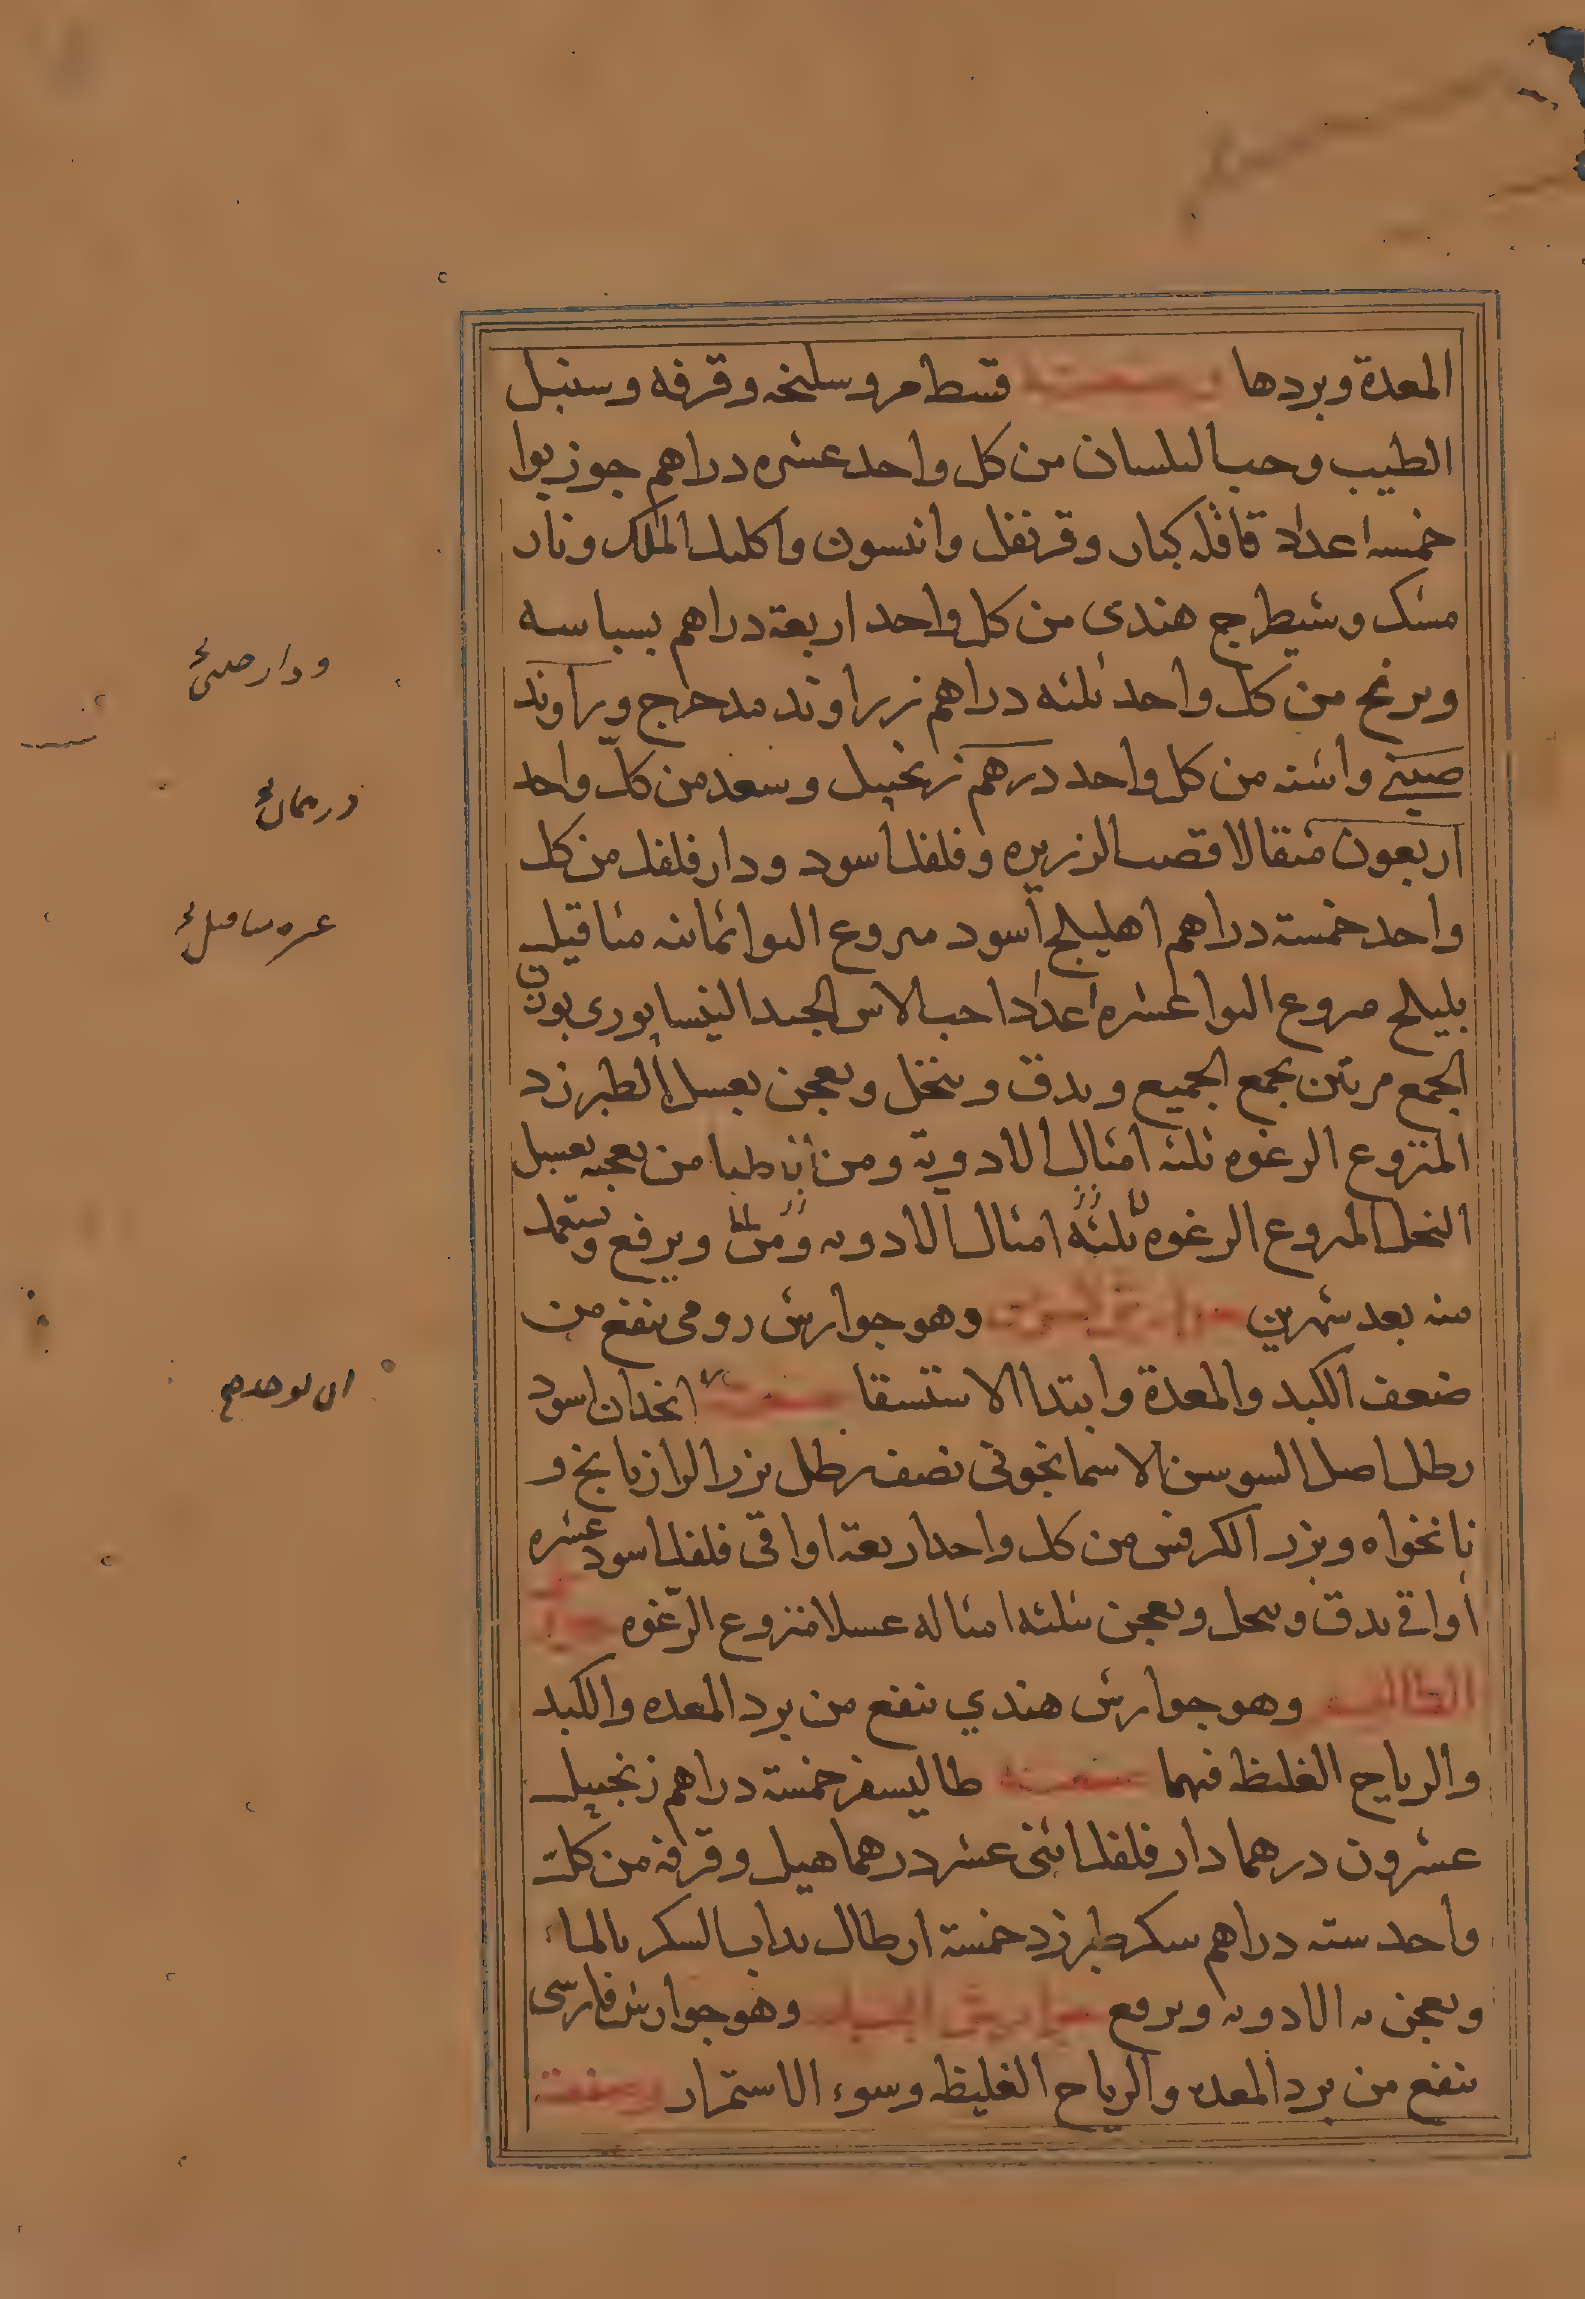 المعدة وبردها وصفته قسط مر وسليخه وقرفه وسنبل
الطيب وحب البلسان من كل واحد عشره دراهم جوزبوا
خمسه اعداد قاقله كبار وقرنفل وانيسون واكليل الملك ونار
مشك وشيطرج هندى من كل واحد اربعة دراهم بسباسه
وبرنج من كل واحد ثلثه دراهم زراوند مدحرج وراوند
صيني واشنه من كل واحد درهم زنجبيل وسعد من كل واحد
اربعون مثقالا قصب الزريره وفلفل اسود ودار فلفل من كل
واحد خمسة دراهم اهليلج اسود منزوع النوا ثمانيه مثاقيل
بليلج منزوع النوا عشره اعداد احب الاس الجيد النيسابورى بوزن
الجمع مرتين يجمع الجميع ويدق وينخل ويعجن بعسل الطبرزد
المنزوع الرغوه ثلثه امثال الادوية ومن من يعجنه بعسل
النحل المنزوع الرغوه ثلثة امثال الادويه ومن ويرفع ويستعمل
منه بعد شهرين وهو جوارش رومى ينفع من
ضعف الكبد والمعدة وابتدا الاستسقا صفته انجدان اسود
رطل اصل السوسن الاسمانجونى نصف رطل بزر الرازيانج و
نانخواه وبزر الكرفس من كل واحد اربعة اواقى فلفل اسود عشره
اواقى يدق وينخل ويعجن بثلثه امثاله عسلا منزوع الرغوه جوارش
الطاليسفر وهو جوارش هندي ينفع من برد المعده والكبد
والرياح الغليظ فيهما صفته طاليسفر خمسة دراهم زنجبيل
عشرون درهما دار فلفل اثنى عشر درهما هيل وقرفه من كل
واحد سته دراهم سكر طبرزد خمسة ارطال يداب السكر بالماء
ويعجن به الادويه ويرفع جوارش وهو جوارش فارسى
ينفع من برد المعده والرياح الغليظه وسوء الاستمرار وصفته
ودار صينى
درهمان